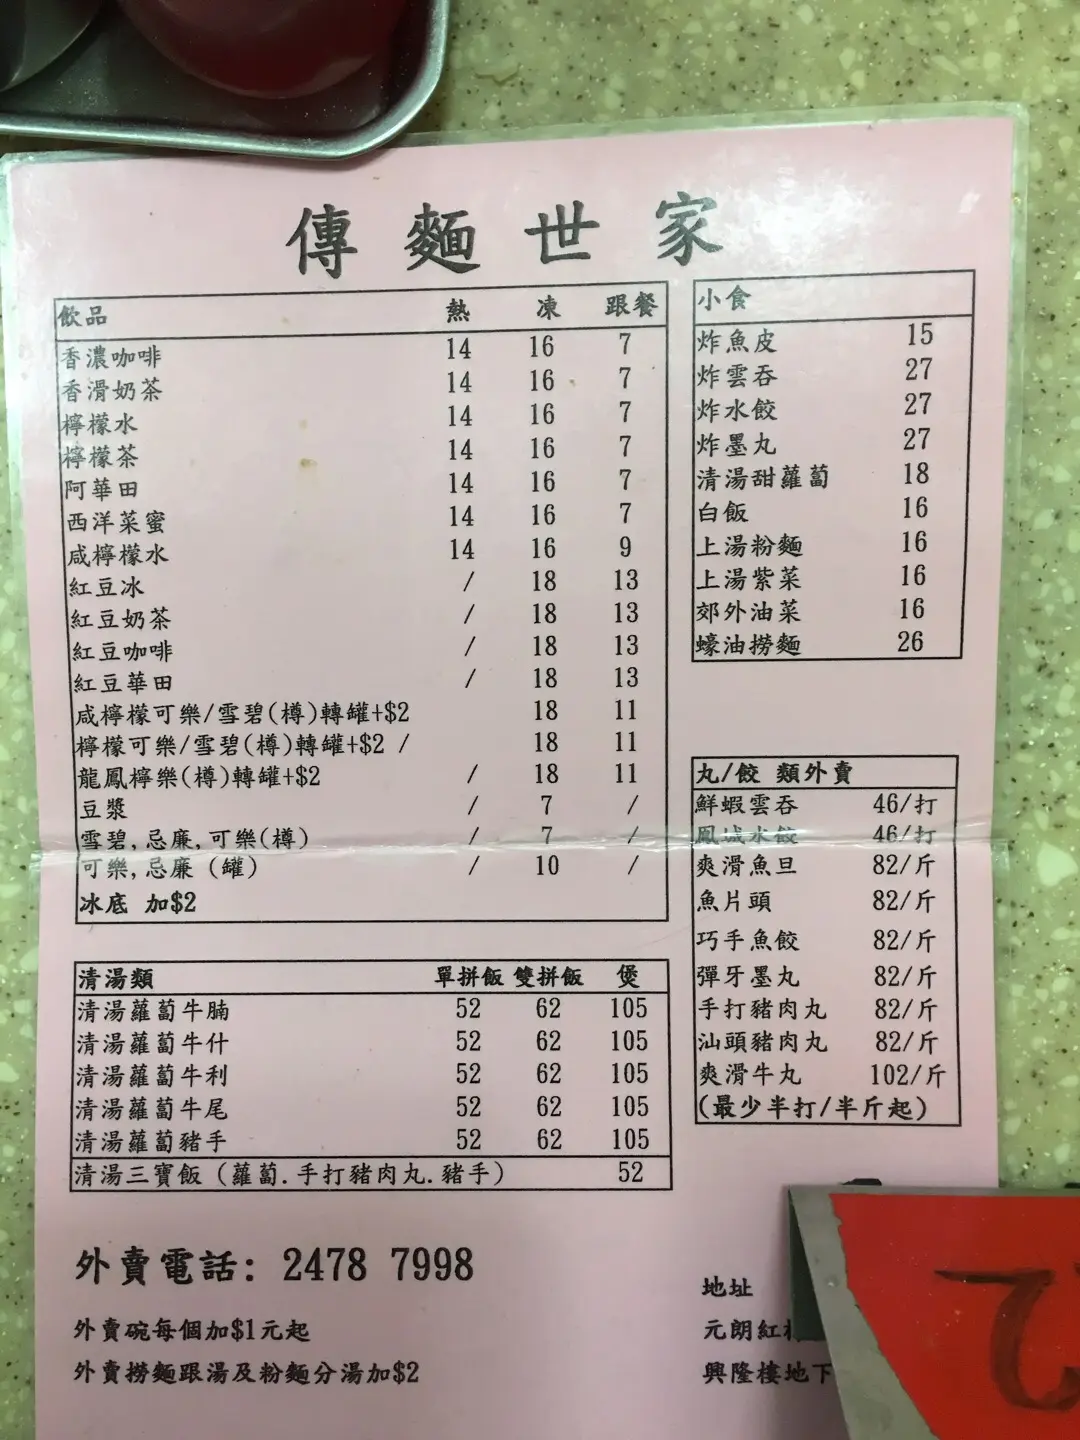 傳麵世家
飲品 熱 凍 跟餐
香濃咖啡 14 16 7
香滑奶茶 14 16 7
檸檬水 14 16 7
檸檬茶 14 16 7
阿華田 14 16 7
西洋菜蜜 14 16 7
咸檸檬水 14 16 9
紅豆冰 / 18 13
紅豆奶茶 / 18 13
紅豆咖啡 / 18 13
紅豆華田 / 18 13
咸檸檬可樂/雪碧(樽)轉罐+$2 18 11
檸檬可樂/雪碧(樽)轉罐+$2 / 18 11
龍鳳檸樂(樽)轉罐+$2 / 18 11
豆漿 / 7 /
雪碧,忌廉,可樂(樽) / 7 /
可樂,忌廉 (罐) / 10 /
冰底 加$2
小食
炸魚皮 15
炸雲吞 27
炸水餃 27
炸墨丸 27
清湯甜蘿蔔 18
白飯 16
上湯粉麵 16
上湯紫菜 16
郊外油菜 16
蠔油撈麵 26
丸/餃 類外賣
鮮蝦雲吞 46/打
鳳城水餃 46/打
爽滑魚旦 82/斤
魚片頭 82/斤
巧手魚餃 82/斤
彈牙墨丸 82/斤
手打豬肉丸 82/斤
汕頭豬肉丸 82/斤
爽滑牛丸 102/斤
(最少半打/半斤起)
清湯類 單拼飯 雙拼飯 煲
清湯蘿蔔牛腩 52 62 105
清湯蘿蔔牛什 52 62 105
清湯蘿蔔牛利 52 62 105
清湯蘿蔔牛尾 52 62 105
清湯蘿蔔豬手 52 62 105
清湯三寶飯 (蘿蔔.手打豬肉丸.豬手) 52
外賣電話: 2478 7998
外賣碗每個加$1元起
外賣撈麵跟湯及粉麵分湯加$2
地址
元朗紅
興隆樓地下